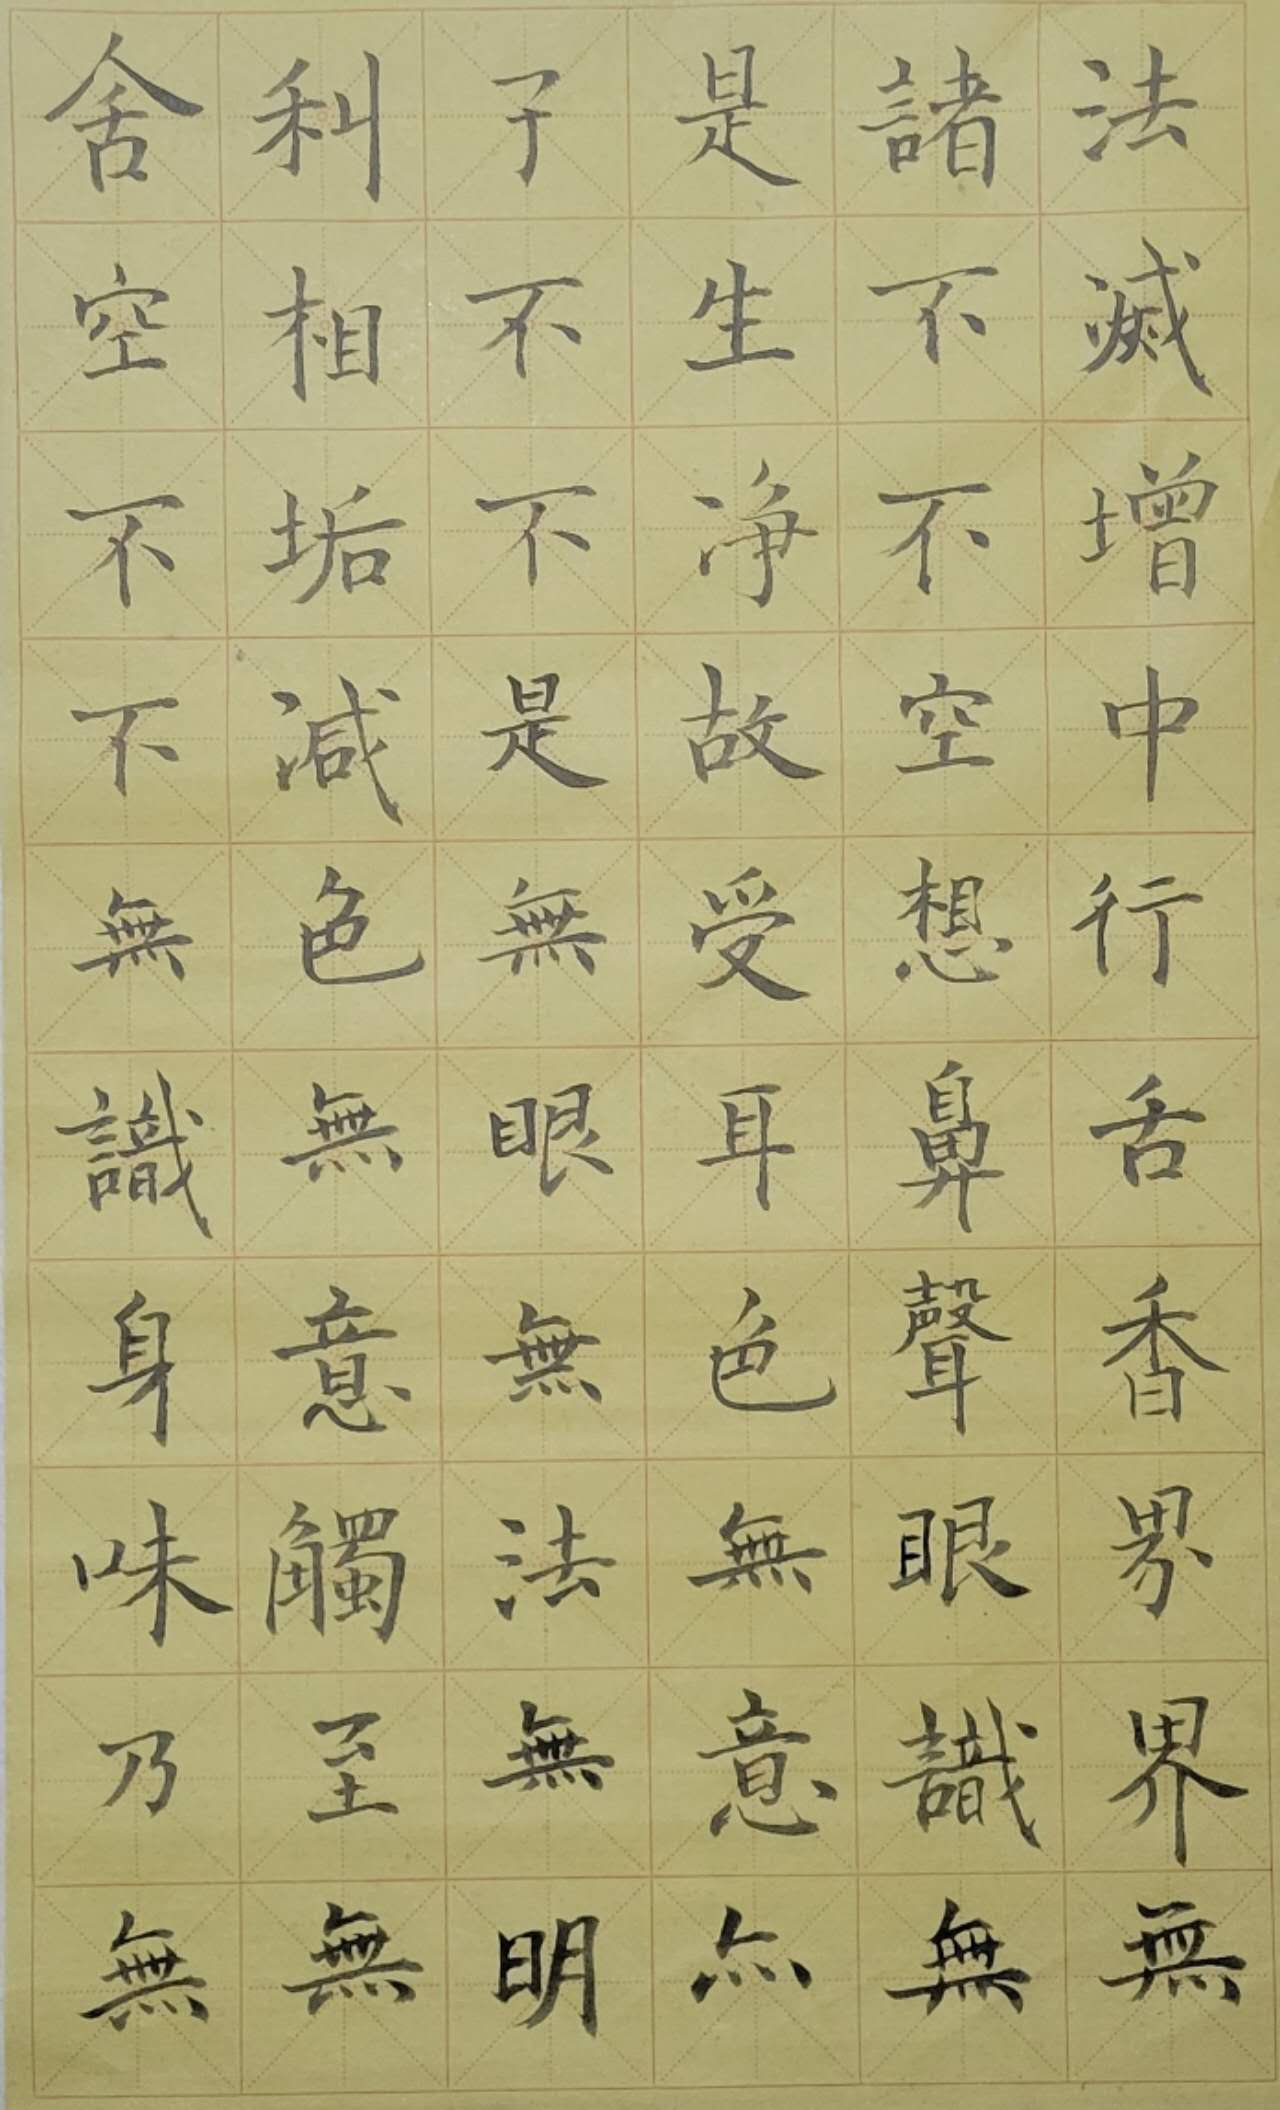 舍利子是諸法
空相不生不滅
不垢不淨不增
不減是故空中
無色無受想行
識無眼耳鼻舌
身意無色聲香
味觸法無眼界
乃至無意識界
無無明亦無無